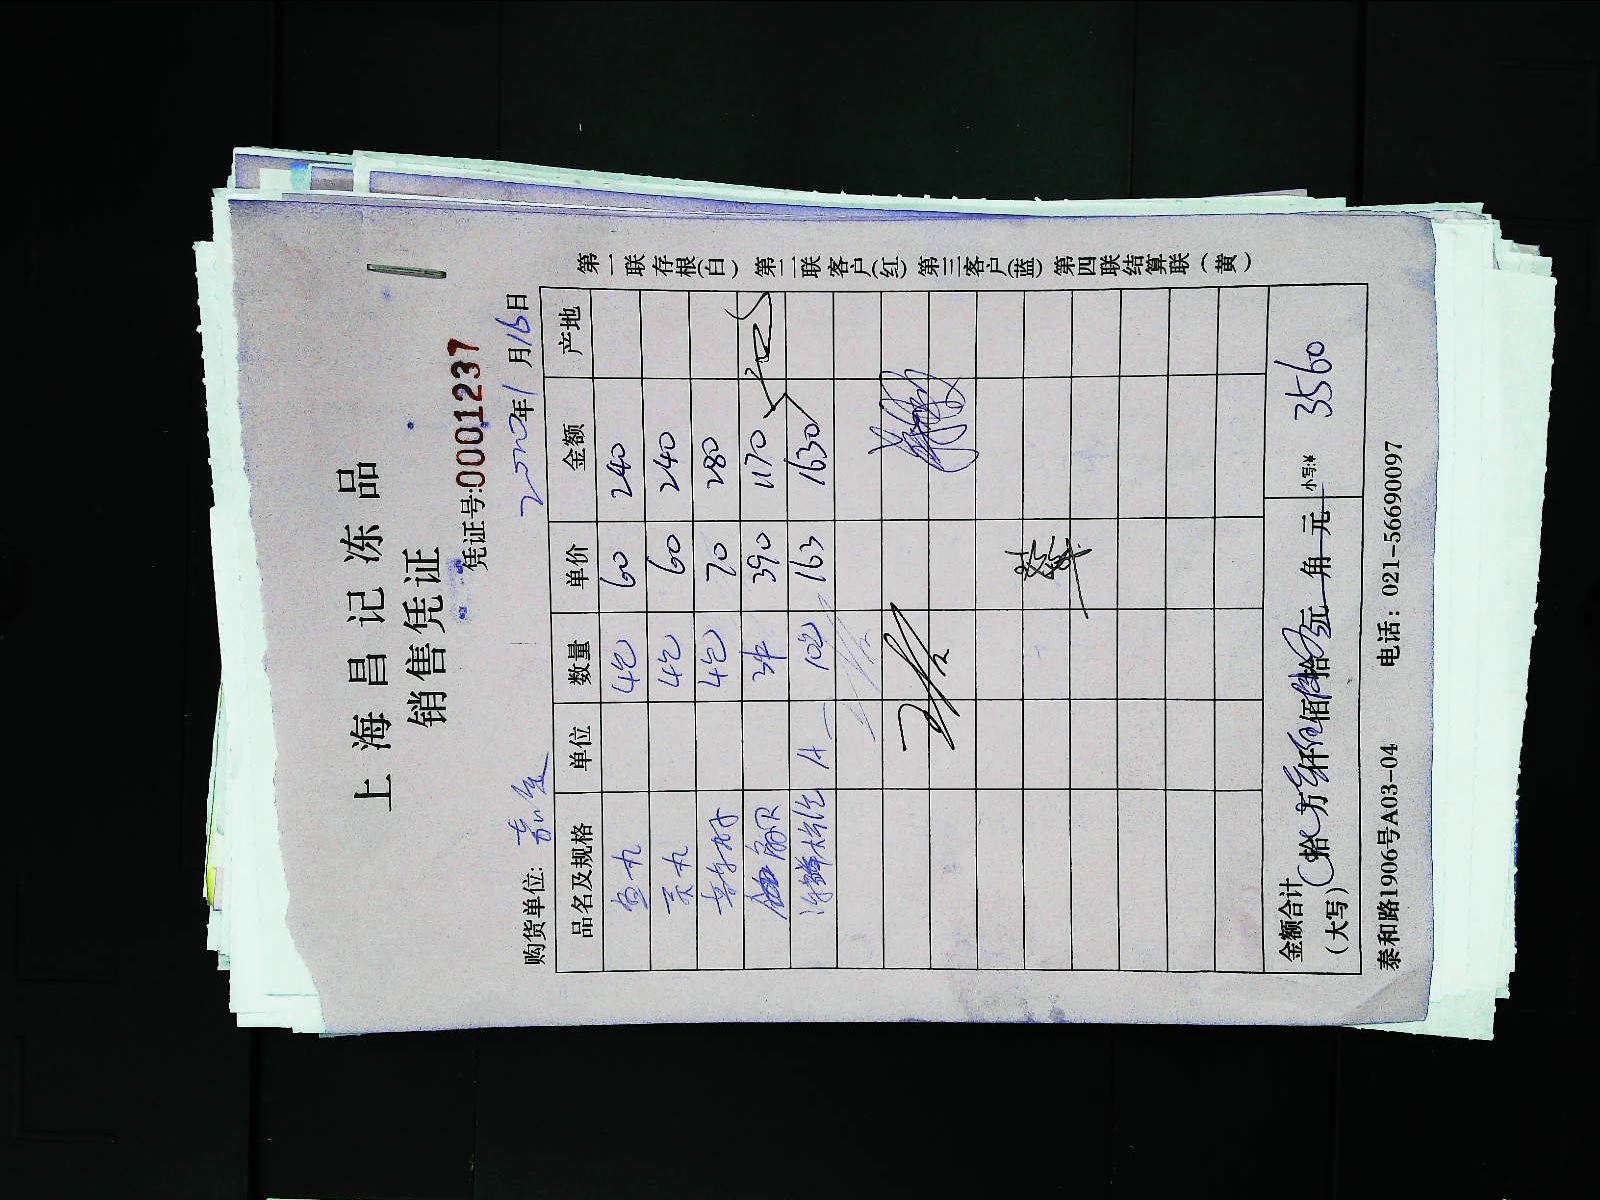 上海昌记冻品
销售凭证
凭证号:0001237
购货单位: 2020年1月16日
品名及规格 单位 数量 单价 金额 产地
鱼丸 4包 60 240
贡丸 4包 60 240
4包 70 280
3件 390 1170
10包 163 1630
金额合计(大写) 拾 万 仟 佰 拾 元 角 元 小写:¥ 3560
泰和路1906号A03-04 电话: 021-56690097
第一联存根(白) 第二联客户(红) 第三客户(蓝) 第四联结算联(黄)